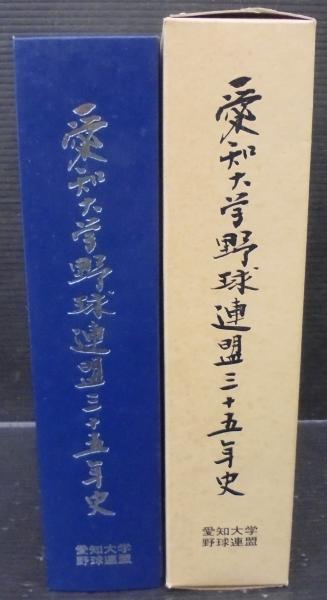 愛知大学野球連盟三十五年史
愛知大学
野球連盟
愛知大学野球連盟三十五年史
愛知大学
野球連盟